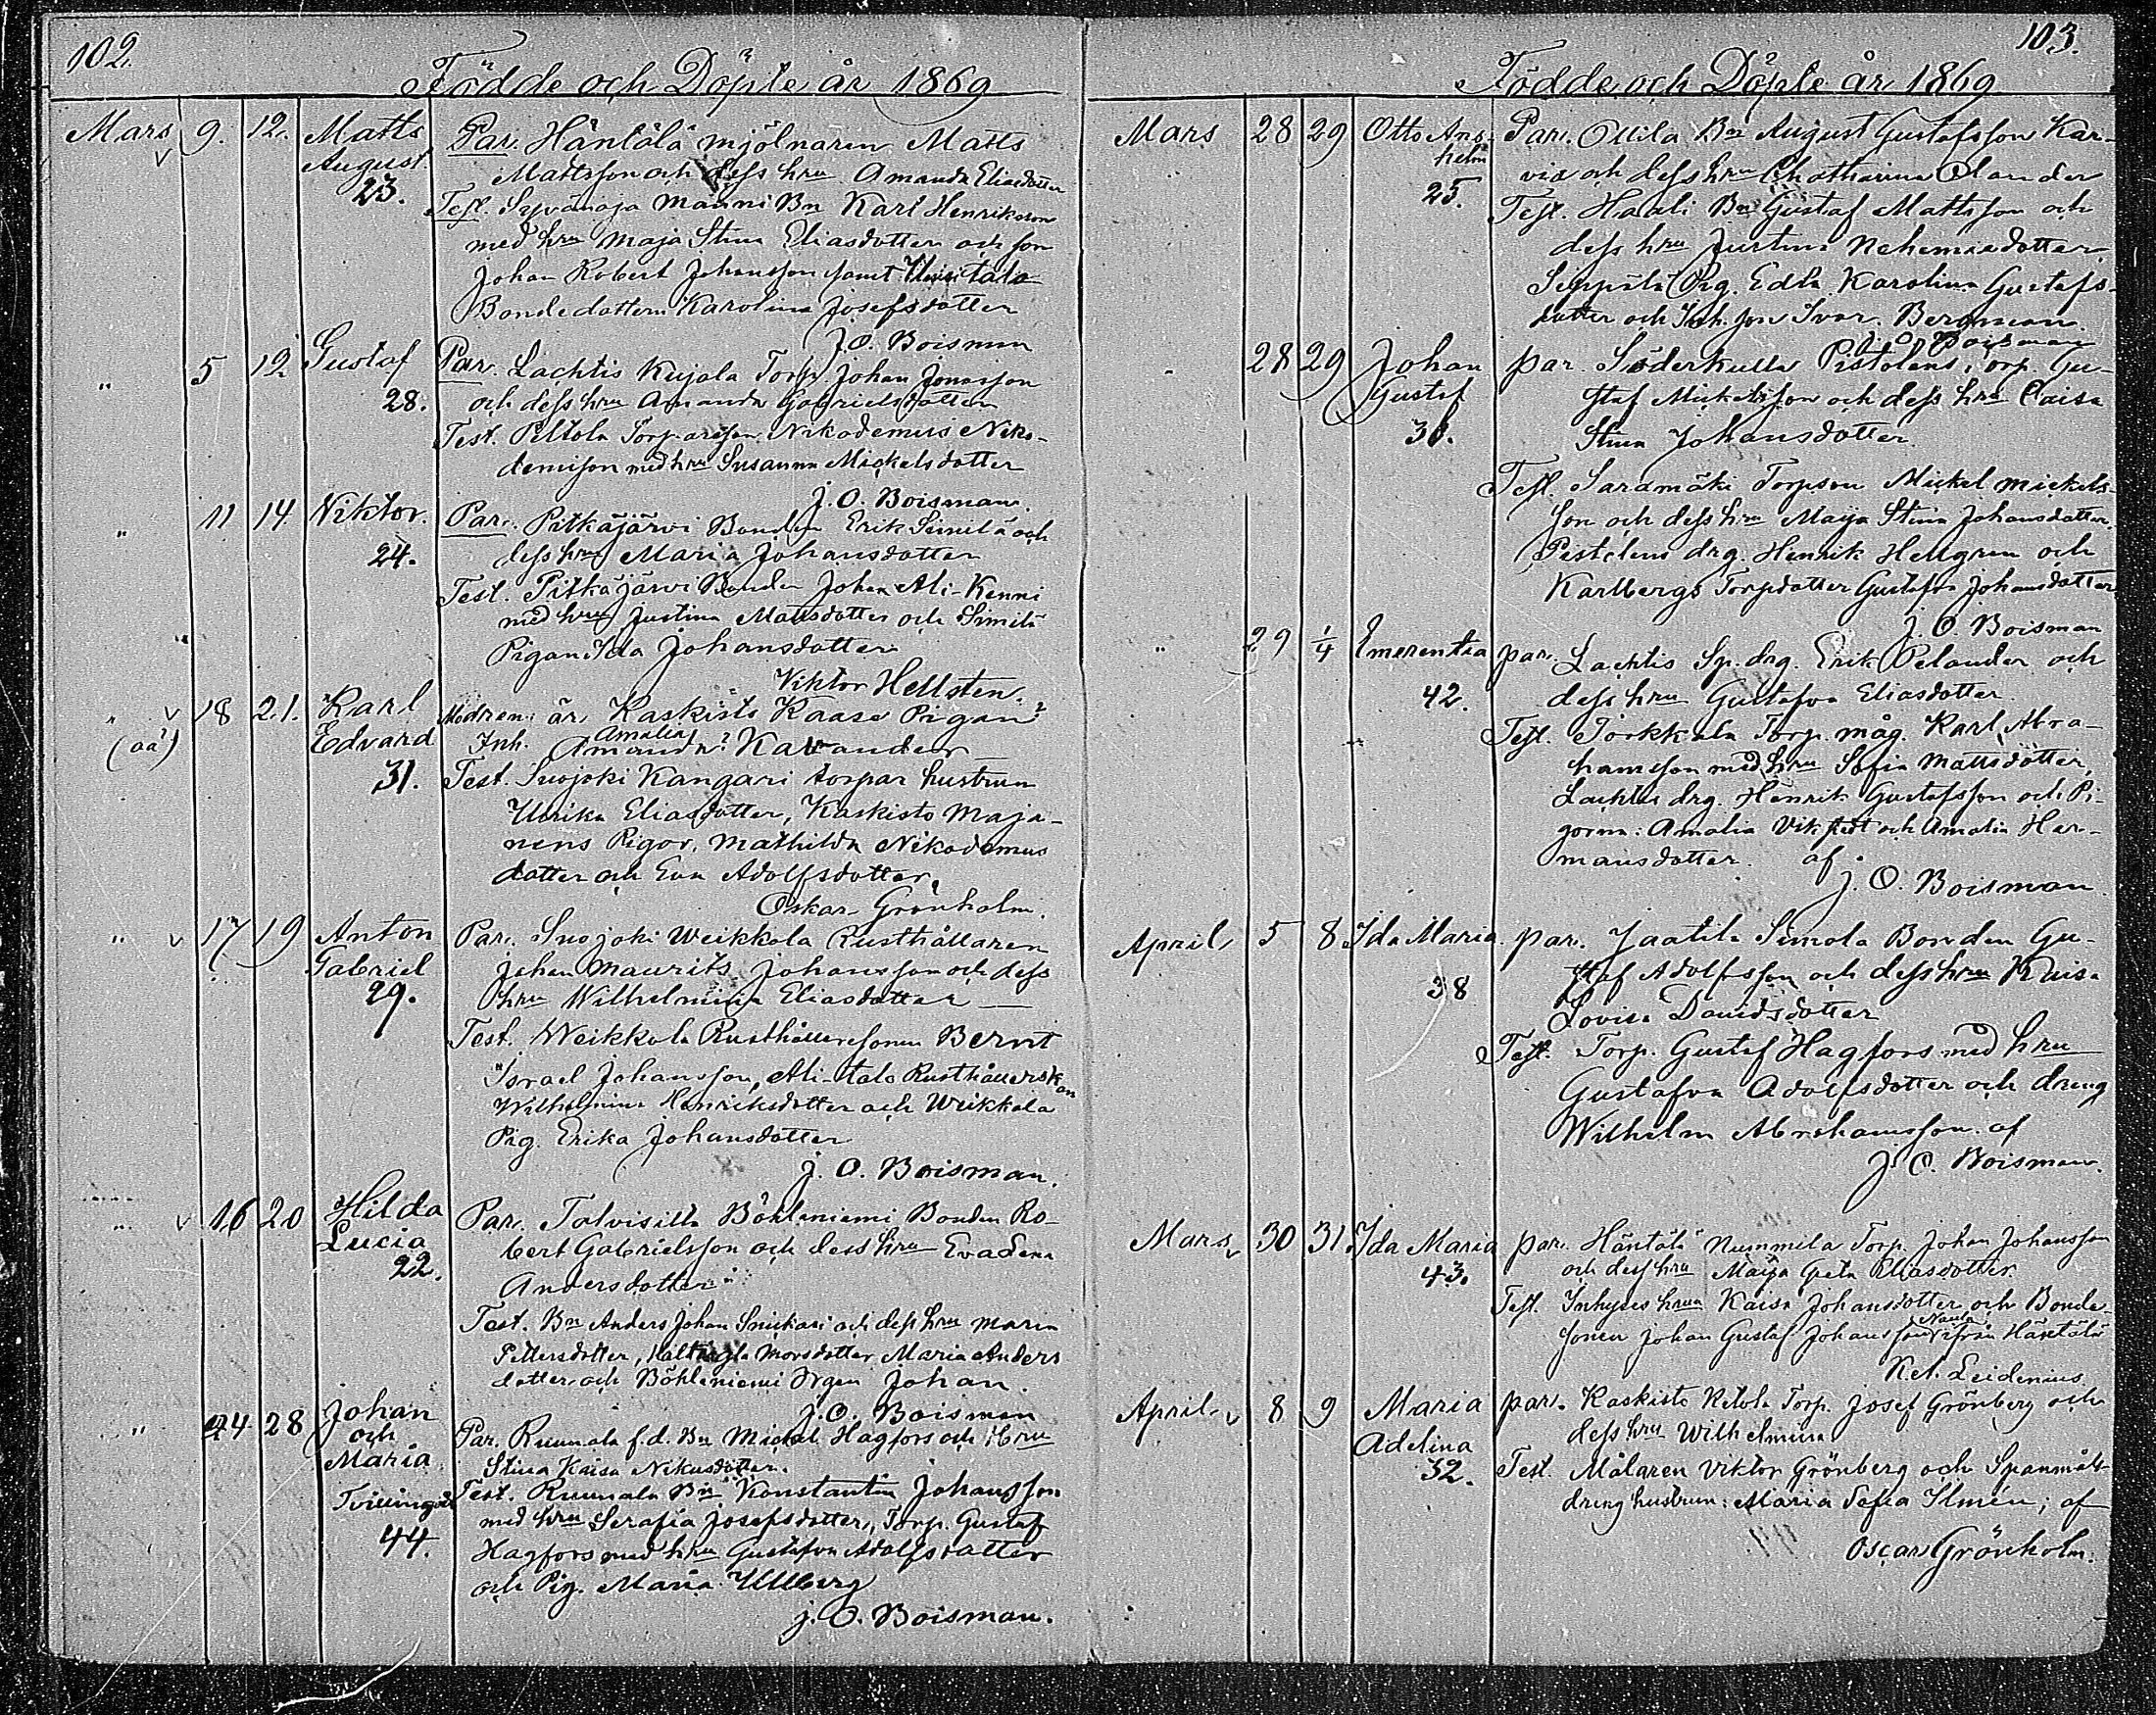 102.
Födde och Döpte år 1869
Mars 9. 12. Matts August. 23. Par. Häntälä mjölnaren Matts
Mattsson och dess hru Amanda Eliasdotter
Test. Syvänoja Manni Bn Karl Henriksson
med hru Maja Stina Eliasdotter och son
Johan Robert Johansson samt Uusitalo
Bondedottern Karolina Josefsdotter
J. O. Boisman
" 5 12 Gustaf 28. Par. Lachtis Kujala Torp. Johan Jonasson
och dess hru Amanda Gabrielsdotter
Test. Peltola Torparson Nikodemus Niko-
demison med hru Susanna Mickelsdotter
J. O. Boisman.
" 11 14 Viktor. 24. Par. Pitkäjärvi Bonden Erik Similä och
dess hru Maria Johansdotter
Test. Pitkäjärvi Bonden Johan Ali-Kenni
med hru Justina Mattsdotter och Similä
Pigan Ida Johansdotter
Viktor Hellsten.
" v 18 21. Karl Edvard 31. Modren är Kaskisto Kaase Pigan
(oä) Inh. Amalia Amanda? Kavander
Test. Suojoki Kangari torpar hustrun
Ulrika Eliasdotter, Kaskisto Maja-
nens Pigor, Mathilda Nikodemus
dotter och Eva Adolfsdotter.
Oskar Grönholm.
" v 17 19 Anton Gabriel 29. Par. Suojoki Weikkola Rusthållaren
Johan Maurits Johansson och dess
hru Wilhelmina Eliasdotter —
Test. Weikkola Rusthållaresonen Bernt
Israel Johansson, Ali-talo Rusthållerskan
Wilhelmina Henriksdotter och Weikkola
Pig. Erika Johansdotter
J. O. Boisman.
" v 16 20 Hilda Lucia 22. Par. Talvisilla Böhleniemi Bonden Ro-
bert Gabrielsson och dess hru Eva Lena
Andersdotter
Test. Bn Anders Johan Snickari och dess hru Maria
Pettersdotter, Morsdotter Maria Anders
dotter och Böhleniemi Johan.
J. O. Boisman
" 24 28 Johan och Maria Tvillingar 44. Par. Ruumala f.d. Bn Mickel Hagfors och Hru
Stina Kaisa Nikusdotter.
Test. Ruumala Bn Konstantin Johansson
med hru Serafia Josefsdotter, Torp. Gustaf
Hagfors med hru Gustafva Adolfsdotter
och Pig. Maria Ullberg
J. O. Boisman.
103.
Födde och Döpte år 1869
Mars 28 29 Otto Ans-helm 25. Par. Ollila Bn August Gustafsson Kar-
via och dess hru Chatharina Olander
Test. Haali Bn Gustaf Mattsson och
dess hru Justina Nehemiedotter,
Seppälä Pig. Edla Karolina Gustafs-
dotter och Inh. son Ivar Bergman.
J. O. Boisman
" 28 29 Johan Gustaf par. Söderkulla Pistolens Torp. Gu-
staf Mickelsson och dess hru Caisa
Stina Johansdotter.
Test. Saramäki Torpson Mickel Mickels-
son och dess hru Maija Stina Johansdotter.
Pistolens drg. Henrik Hellgren och
Karlbergs Torpdotter Gustafva Johansdotter
J. O. Boisman
" 29 1/4 Emerentia 42. par. Lachtis Sp. drg. Erik Pelander och
dess hru Gustafva Eliasdotter.
Test. Torkkala Torp. måg. Karl Abra-
hamsson med hru Sofia Mattsdotter,
Lachtis drg. Henrik Gustafsson och Pi-
gorna: Amalia Vikstedt och Amalia Her-
mansdotter. af
J. O. Boisman
April 5 8 Ida Maria. 38 par. Jaatila Simola Bonden Gu-
staf Adolfsson och dess hru Kaisa
Lovisa Davidsdotter
Test. Torp. Gustaf Hagfors med hru
Gustafva Adolfsdotter och dreng
Wilhelm Abrahamsson. af
J. O. Boisman.
Mars v 30 31 Ida Maria 43. par. Häntälä Nummila Torp. Johan Johansson
och dess hru Maija Greta Eliasdotter.
Test. Inhyses hrun Kaisa Johansdotter och Bonde-
sonen Johan Gustaf Johansson Naula ifrån Häntälä
K. A. Leidenius
April v 8 9 Maria Adelina 32. par. Kaskisto Ketola Torp. Josef Grönberg och
dess hru Wilhelmina
Test. Målaren Viktor Grönberg och Spanmåls-
dreng hustrun: Maria Sofia Ilmén; af
Oscar Grönholm.